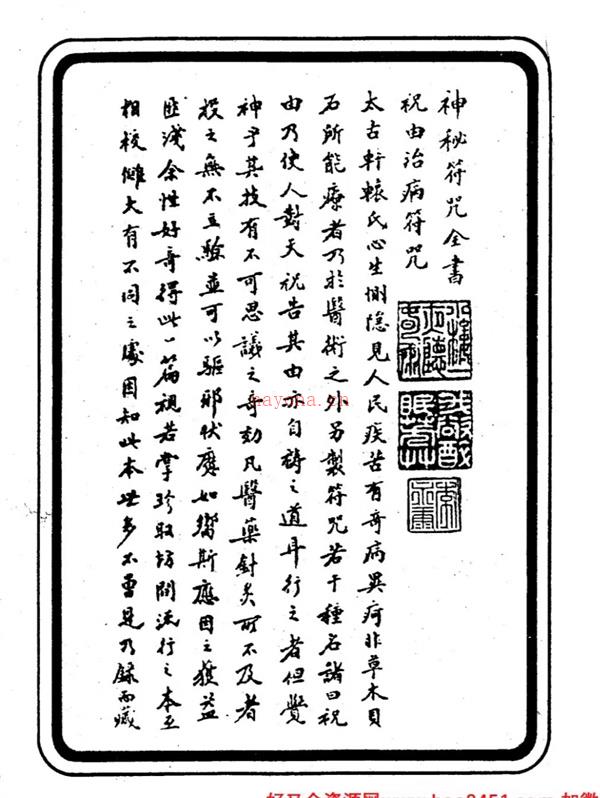 神秘符咒全書
祝由治病符咒
太古軒轅氏心生惻隱見人民疾苦有奇病異疴非草木貝
石所能療者乃於醫術之外另製符咒若干種名諸曰祝
由乃使人對天祝告其由亦自禱之道耳行之者但覺
神乎其技有不可思議之奇効凡醫藥針灸所不及者
投之無不立驗並可以驅邪伏魔如響斯應因之獲益
匪淺余性好奇得此一篇視若掌珍取坊間流行之本互
相校讎大有不同之處因知此本世多不曾見乃錄而藏
小樓一夜聽春雨
我欲醉眠芳草
nayona.cn